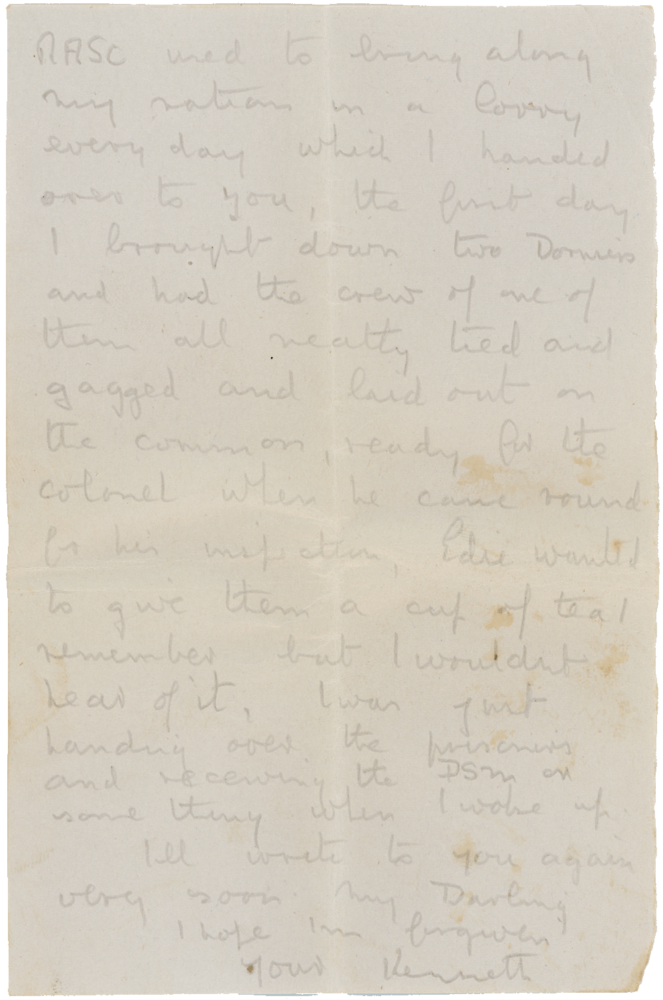 RASC used to bring along
my rations in a lorry
every day which I handed
over to you, the first day
I brought down two Dorniers
and had the crew of one of
them all neatly tied and
gagged and laid out on
the common, ready for the
colonel when he came round
for his inspection, Edie wanted
to give them a cup of tea I
remember but I wouldnt
hear of it, I was just
handing over the prisoners
and receiving the DSM or
some thing when I woke up.
Ill write to you again
very soon my Darling
I hope Im forgiven
Your Kenneth